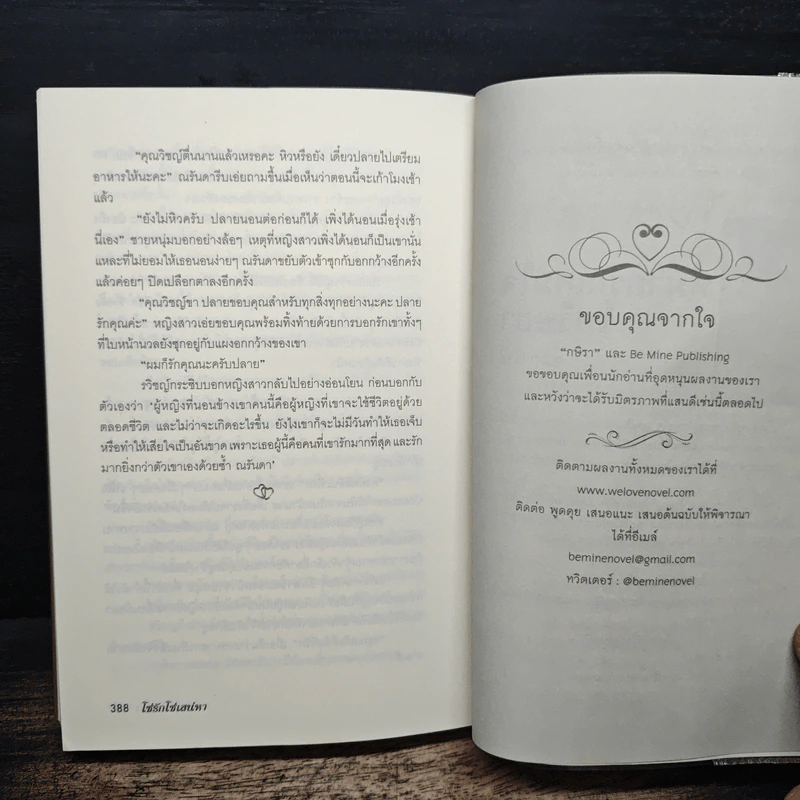 “คุณวิชญ์ตื่นนานแล้วเหรอคะ หิวหรือยัง เดี๋ยวปลายไปเตรียม
อาหารให้นะคะ” ณรันดารีบเอ่ยถามขึ้นเมื่อเห็นว่าตอนนี้จะเก้าโมงเช้า
แล้ว
“ยังไม่หิวครับ ปลายนอนต่อก่อนก็ได้ เพิ่งได้นอนเมื่อรุ่งเช้า
นี่เอง” ชายหนุ่มบอกอย่างล้อๆ เหตุที่หญิงสาวเพิ่งได้นอนก็เป็นเขานั่น
แหละที่ไม่ยอมให้เธอนอนง่ายๆ ณรันดาขยับตัวเข้าซุกกับอกกว้างอีกครั้ง
แล้วค่อยๆ ปิดเปลือกตาลงอีกครั้ง
“คุณวิชญ์ขา ปลายขอบคุณสำหรับทุกสิ่งทุกอย่างนะคะ ปลาย
รักคุณค่ะ” หญิงสาวเอ่ยขอบคุณพร้อมทิ้งท้ายด้วยการบอกรักเขาทั้งๆ
ที่ใบหน้านวลยังซุกอยู่กับแผงอกกว้างของเขา
“ผมก็รักคุณนะครับปลาย”
รวิชญ์กระซิบบอกหญิงสาวกลับไปอย่างอ่อนโยน ก่อนบอกกับ
ตัวเองว่า ‘ผู้หญิงที่นอนข้างเขาคนนี้คือผู้หญิงที่เขาจะใช้ชีวิตอยู่ด้วย
ตลอดชีวิต และไม่ว่าจะเกิดอะไรขึ้น ยังไงเขาก็จะไม่มีวันทำให้เธอเจ็บ
หรือทำให้เสียใจเป็นอันขาด เพราะเธอผู้นี้คือคนที่เขารักมากที่สุด และรัก
มากยิ่งกว่าตัวเขาเองด้วยซ้ำ ณรันดา’
388 โซ่รักโซ่เสน่หา
ขอบคุณจากใจ
“กษิรา” และ Be Mine Publishing
ขอขอบคุณเพื่อนนักอ่านที่อุดหนุนผลงานของเรา
และหวังว่าจะได้รับมิตรภาพที่แสนดีเช่นนี้ตลอดไป
ติดตามผลงานทั้งหมดของเราได้ที่
www.welovenovel.com
ติดต่อ พูดคุย เสนอแนะ เสนอต้นฉบับให้พิจารณา
ได้ที่อีเมล์
beminenovel@gmail.com
ทวิตเตอร์ : @beminenovel